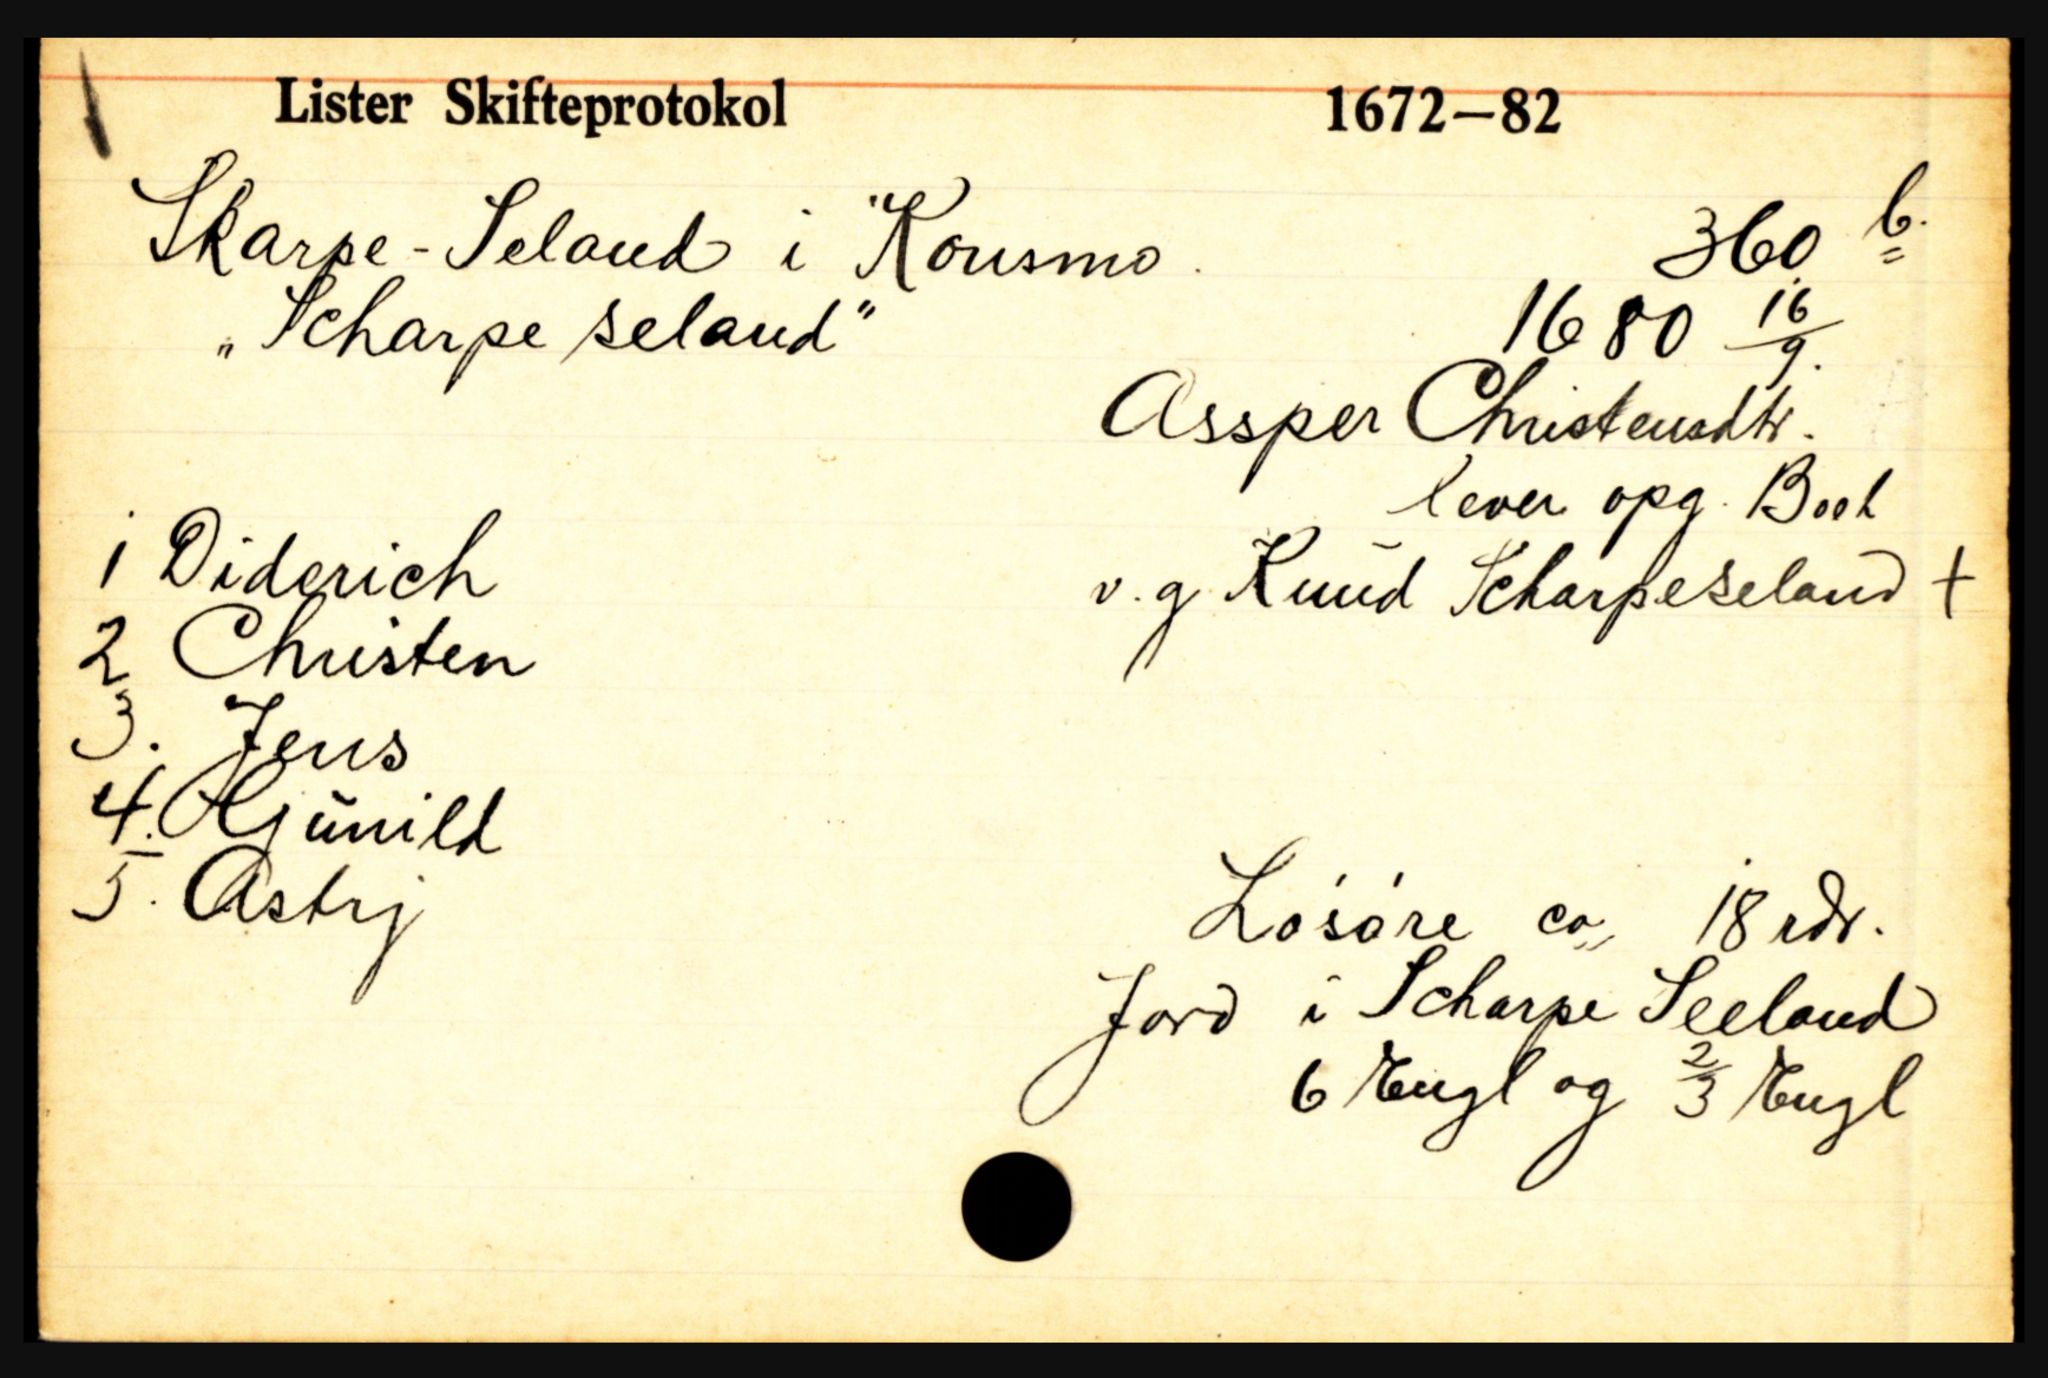 Lister Skifteprotokol 1672—82
Skarpe-Seland i Konsmo. 360 b.
„Scharpeseland" 1680 16/9.
Assper Christensdtr.
lever opg. Boet
1 Diderich
v. g. Knud Scharpeseland +
2 Christen
3. Jens
4. Gjunild
5. Astrj
Løsøre ca 18 rdr.
Jord i Scharpe Seeland
6 Engl og 2/3 Engl